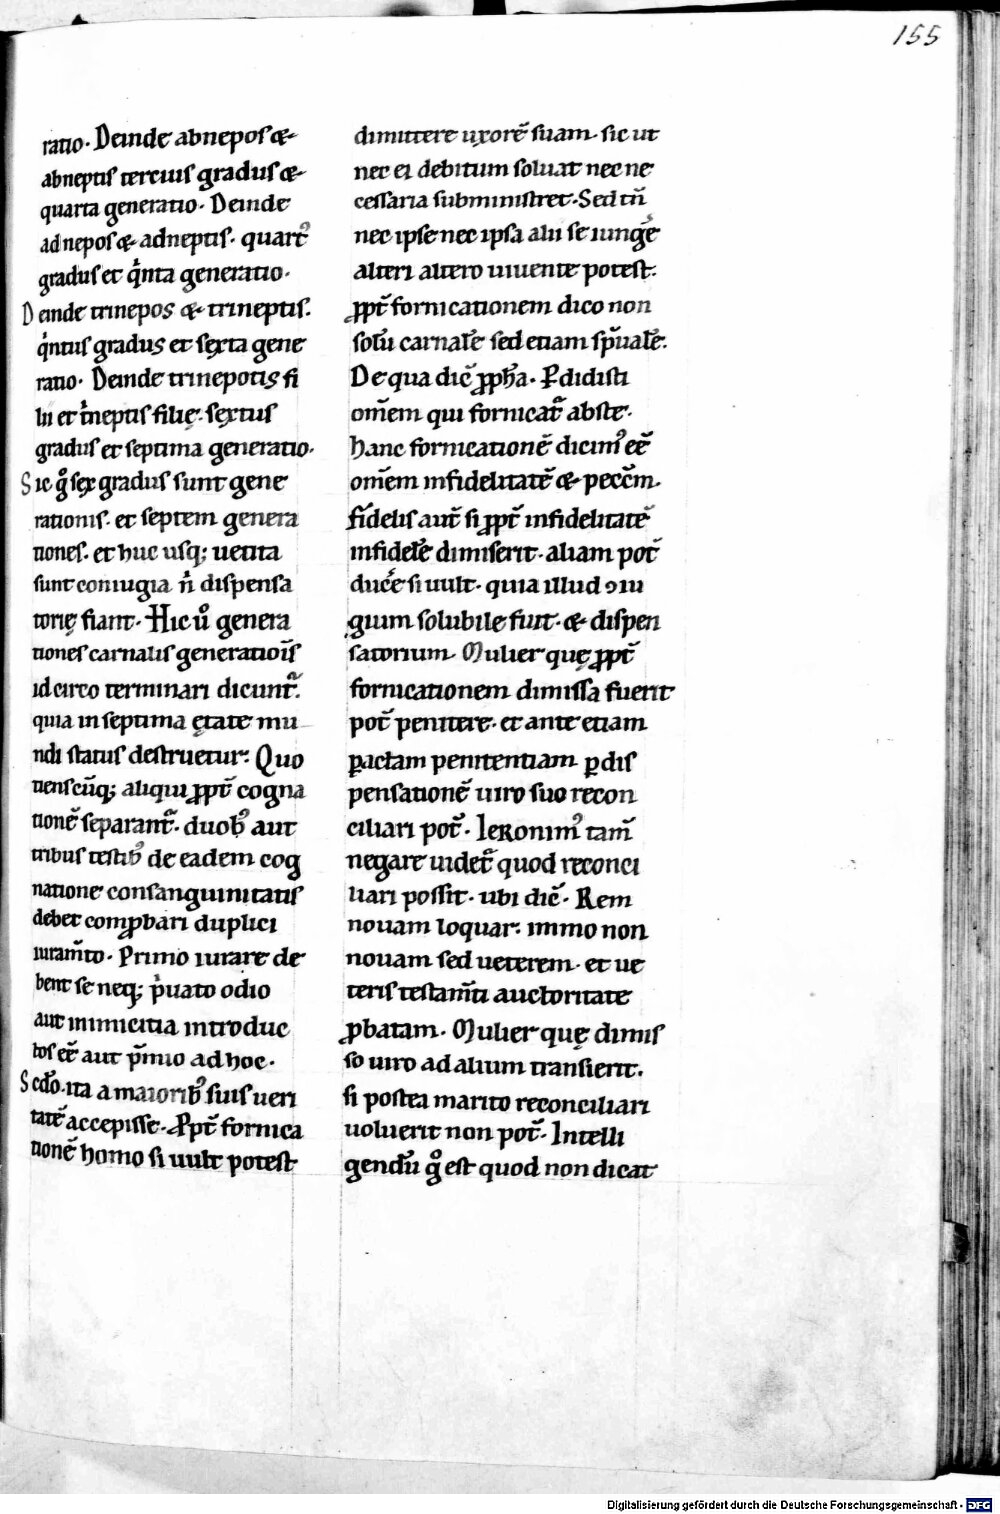 155
ratio. Deinde abnepos &
abneptis tercius gradus &
quarta generatio. Deinde
adnepos & adneptis. quart᾽
gradus et qͥnta generatio.
Deinde trinepos & trineptis.
qͥntus gradus et sexta gene
ratio. Deinde trinepotis fi
lii et tͥneptis filię. sextus
gradus et septima generatio.
Sic gͦ sex gradus sunt gene
rationis. et septem genera
tiones. et huc usq; uetita
sunt coniugia n̄ dispensa
torię fiant. Hic uͦ genera
tiones carnalis generatiōis
idcirco terminari dicunt᷑.
quia in septima ętate mu
ndi status destruetur. Quo
tienscūq; aliqui ꝓpt̄ cogna
tionē separant᷑. duob᾽ aut
tribus testib᾽ de eadem cog
natione consanguinitatis
debet comꝓbari duplici
iuram̄to. Primo iurare de
bent se neq; pͥuato odio
aut inimicitia introduc
tos eē aut p̄mio ad hoc.
Scd̄o. ita a maiorib᾽ suis ueri
tatē accepisse. Ꝓpt̄ fornica
tionē homo si uult potest
dimittere uxorē suam. sic ut
nec ei debitum soluat nec ne
cessaria subministret. Sed tn̄
nec ipse nec ipsa alii se iungē
alteri altero uiuente potest.
ꝓpt̄ fornicationem dico non
solū carnalē sed etiam sp̄ualē.
De qua dic̄ ꝓph̄a. Ꝑdidisti
om̄em qui fornicat᷑ abs te.
Hanc fornicationē dicim᾽ eē
om̄em infidelitatē & pecc̄m.
Fidelis aut̄ si ꝓpt̄ infidelitatē
infidelē dimiserit. aliam pot̄
ducē si uult. quia illud ꝯiu
gium solubile fuit. & dispen
satorium. Mulier quę ꝓpt̄
fornicationem dimissa fuerit
pot̄ penitere. et ante etiam
ꝑactam penitentiam ꝑ dis
pensationē uiro suo recon
ciliari pot̄. Ieronim᾽ tam̄
negare uidet᷑ quod reconci
liari possit. ubi dic̄. Rem
nouam loquar. immo non
nouam sed ueterem. et ue
teris testam̄ti auctoritate
ꝓbatam. Mulier quę dimis
so uiro ad alium transierit.
si postea marito reconciliari
uoluerit non pot̄. Intelli
gendū gͦ est quod non dicat
Digitalisierung gefördert durch die Deutsche Forschungsgemeinschaft - DFG